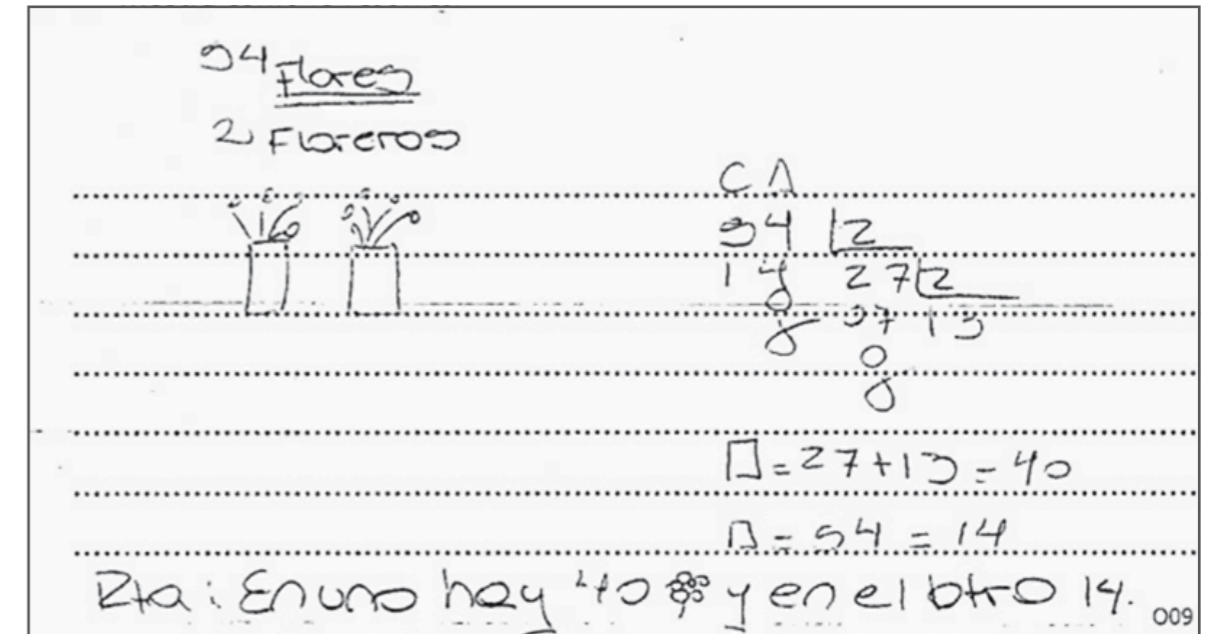 54 Flores
2 Floreros
CA
54 |2
14 27|2
0 07 13
0
□ = 27+13 = 40
□ = 54 = 14
Rta: En uno hay 40 y en el otro 14.
009